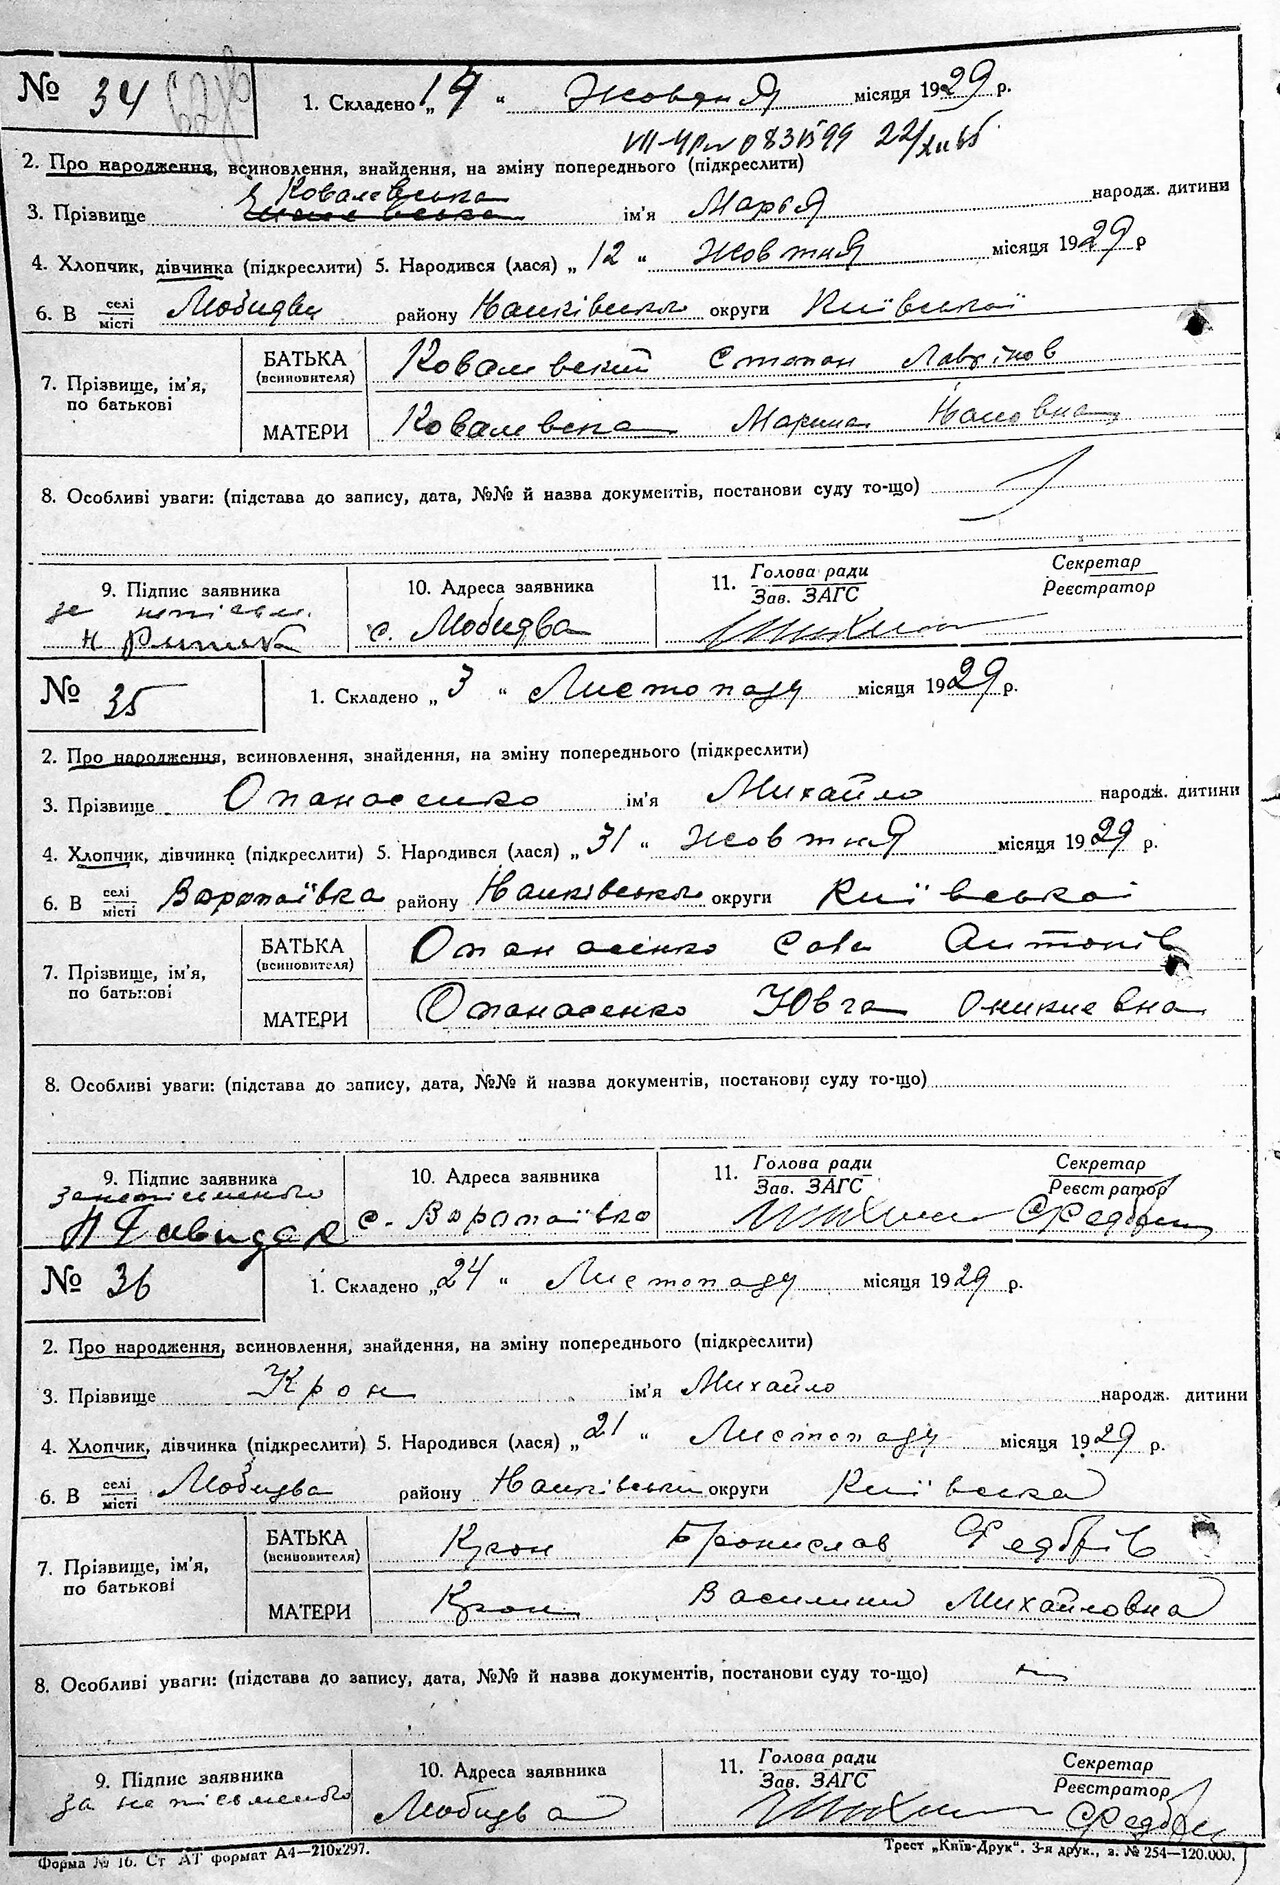 № 34
1. Складено „ 14 “ Жовтня місяця 1929 р.
2. Про народження, всиновлення, знайдення, на зміну попереднього (підкреслити)
Ковалевська
3. Прізвище ім'я Марья народж. дитини
4. Хлопчик, дівчинка (підкреслити) 5. Народився (лася) „ 12 “ Жовтня місяця 1929 р
6. В селі/місті район­у округи Київської
7. Прізвище, ім'я, по батькові
БАТЬКА (всиновителя) Ковалевский Степан
МАТЕРИ Ковалевска Марина
8. Особливі уваги: (підстава до запису, дата, №№ й назва документів, постанови суду то-що)
9. Підпис заявника
10. Адреса заявника
11. Голова ради
Зав. ЗАГС
Секретар
Реєстратор
за неписьм.
с.
№ 35
1. Складено „ 3 “ Листопаду місяця 1929 р.
2. Про народження, всиновлення, знайдення, на зміну попереднього (підкреслити)
3. Прізвище Опанасенко ім'я Михайло народж. дитини
4. Хлопчик, дівчинка (підкреслити) 5. Народився (лася) „ 31 “ Жовтня місяця 1929 р.
6. В селі/місті Воропаївка району округи Київської
7. Прізвище, ім'я, по батькові
БАТЬКА (всиновителя) Опанасенко Сава Антонів
МАТЕРИ Опанасенко Ювга Оникиевна
8. Особливі уваги: (підстава до запису, дата, №№ й назва документів, постанови суду то-що)
9. Підпис заявника
10. Адреса заявника
11. Голова ради
Зав. ЗАГС
Секретар
Реєстратор
с. Воропаївка
№ 36
1. Складено „ 24 “ Листопаду місяця 1929 р.
2. Про народження, всиновлення, знайдення, на зміну попереднього (підкреслити)
3. Прізвище Крон ім'я Михайло народж. дитини
4. Хлопчик, дівчинка (підкреслити) 5. Народився (лася) „ 21 “ Листопаду місяця 1929 р.
6. В селі/місті району округи Київська
7. Прізвище, ім'я, по батькові
БАТЬКА (всиновителя) Крон Бронислав
МАТЕРИ Крон Василина Михайловна
8. Особливі уваги: (підстава до запису, дата, №№ й назва документів, постанови суду то-що)
9. Підпис заявника
10. Адреса заявника
11. Голова ради
Зав. ЗАГС
Секретар
Реєстратор
за неписьменого
Форма № 16. Ст АТ формат А4—210х297.
Трест „Київ-Друк“. 3-я друк., з. № 254—120.000.